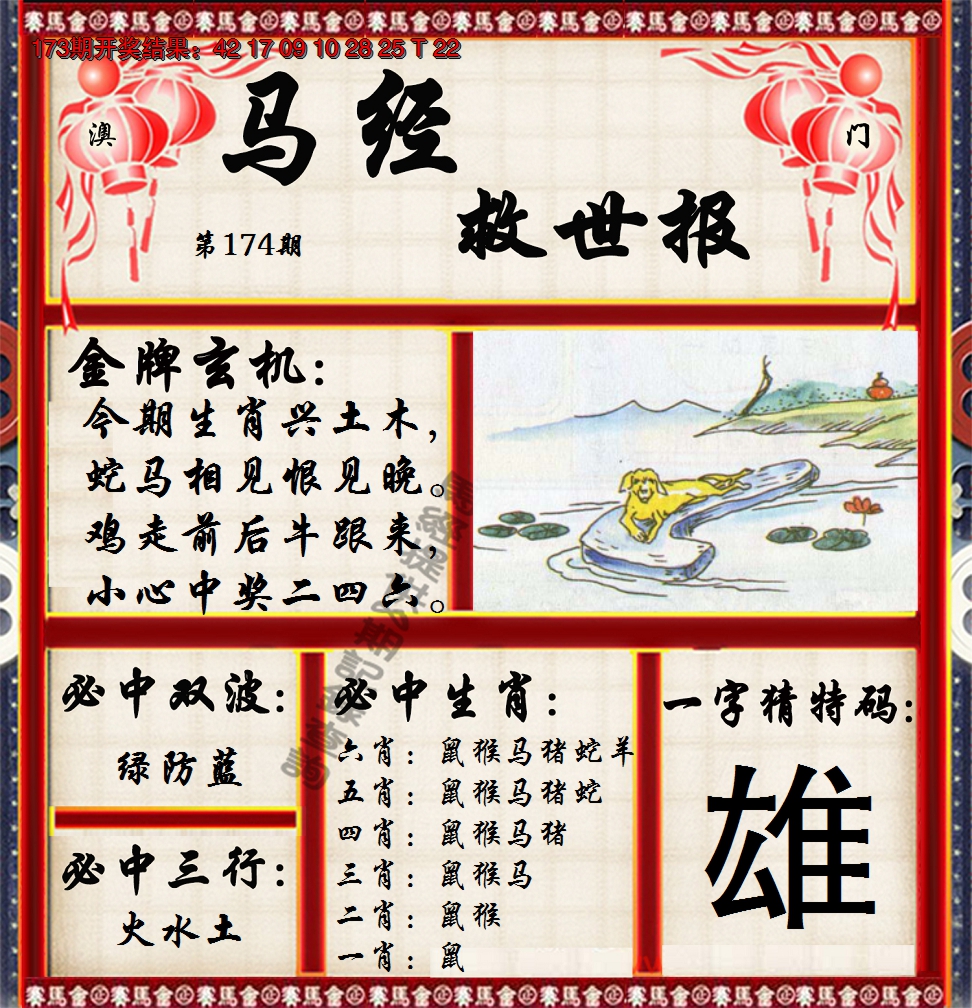 赛馬会赛馬会赛馬会赛馬会赛馬会赛馬会赛馬会赛馬会赛馬会
173期开奖结果：42 17 09 10 28 25 T 22
澳
门
马经
救世报
第174期
金牌玄机：
今期生肖兴土木，
蛇马相见恨见晚。
鸡走前后牛跟来，
小心中奖二四六。
必中双波：
绿防蓝
必中三行：
火水土
必中生肖：
六肖：鼠猴马猪蛇羊
五肖：鼠猴马猪蛇
四肖：鼠猴马猪
三肖：鼠猴马
二肖：鼠猴
一肖：鼠
一字猜特码：
雄